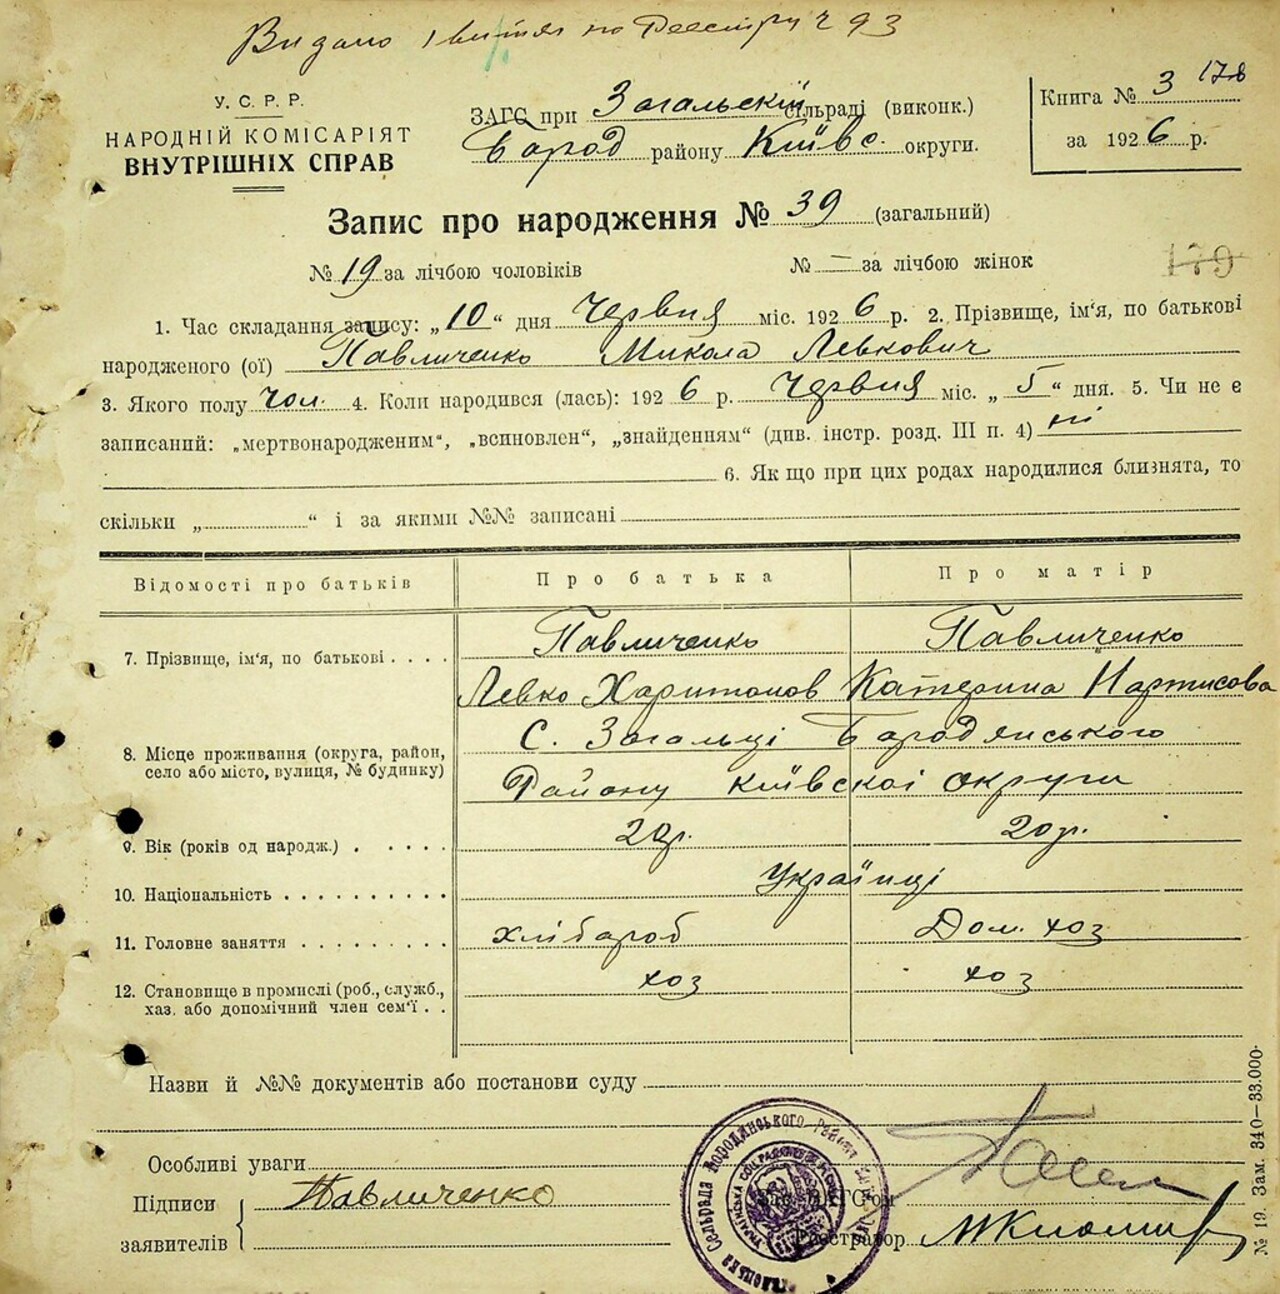 Видано 1 витяг по Реєстру ч 93
У. С. Р. Р.
НАРОДНІЙ КОМІСАРІЯТ
ВНУТРІШНІХ СПРАВ
ЗАГС при Загальскій сільраді (виконк.)
Бород району Київс. округи.
Книга № 3 178
за 1926 р.
Запис про народження № 39 (загальний)
№ 19 за лічбою чоловіків № — за лічбою жінок
179
1. Час складання запису: „10“ дня Червня міс. 1926 р. 2. Прізвище, ім‘я, по батькові
народженого (ої) Павличенко Микола Левкович
3. Якого полу чол. 4. Коли народився (лась): 1926 р. Червня міс. „5“ дня. 5. Чи не є
записаний: „мертвонародженим“, „всиновлен“, „знайденням“ (див. інстр. розд. III п. 4) ні
6. Як що при цих родах народилися близнята, то
скільки „ “ і за якими №№ записані
Відомості про батьків Про батька Про матір
7. Прізвище, ім‘я, по батькові . . . . Павличенко Павличенко
Левко Харитонов Катерина Нартисова
8. Місце проживання (округа, район, С. Загальці Бородянського
село або місто, вулиця, № будинку) Району Київскоі округи
9. Вік (років од народж.) . . . . . 20 р. 20 р.
10. Національність . . . . . . . . . . Українці
11. Головне заняття . . . . . . . . . хлібароб Дом. хоз
12. Становище в промислі (роб., службв., хоз хоз
хаз. або допомічний член сем‘ї . .
Назви й №№ документів або постанови суду
Особливі уваги
Підписи Павличенко
заявителів
Зав. ЗАГС‘ом
Реєстратор
Сельрада Бородянського Району
№ 19. Зам. 340—33.000.